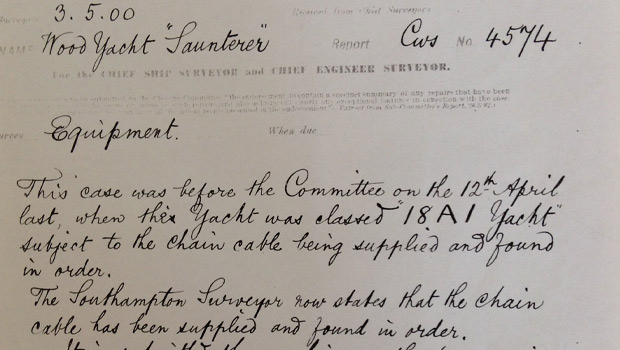 3. 5. 00
Wood Yacht "Saunterer" Report Cws No. 4574
For the CHIEF SHIP SURVEYOR and CHIEF ENGINEER SURVEYOR.
Equipment. When due
This case was before the Committee on the 12th April
last, when this Yacht was classed "18A1 Yacht"
subject to the chain cable being supplied and found
in order.
The Southampton Surveyor now states that the chain
cable has been supplied and found in order.